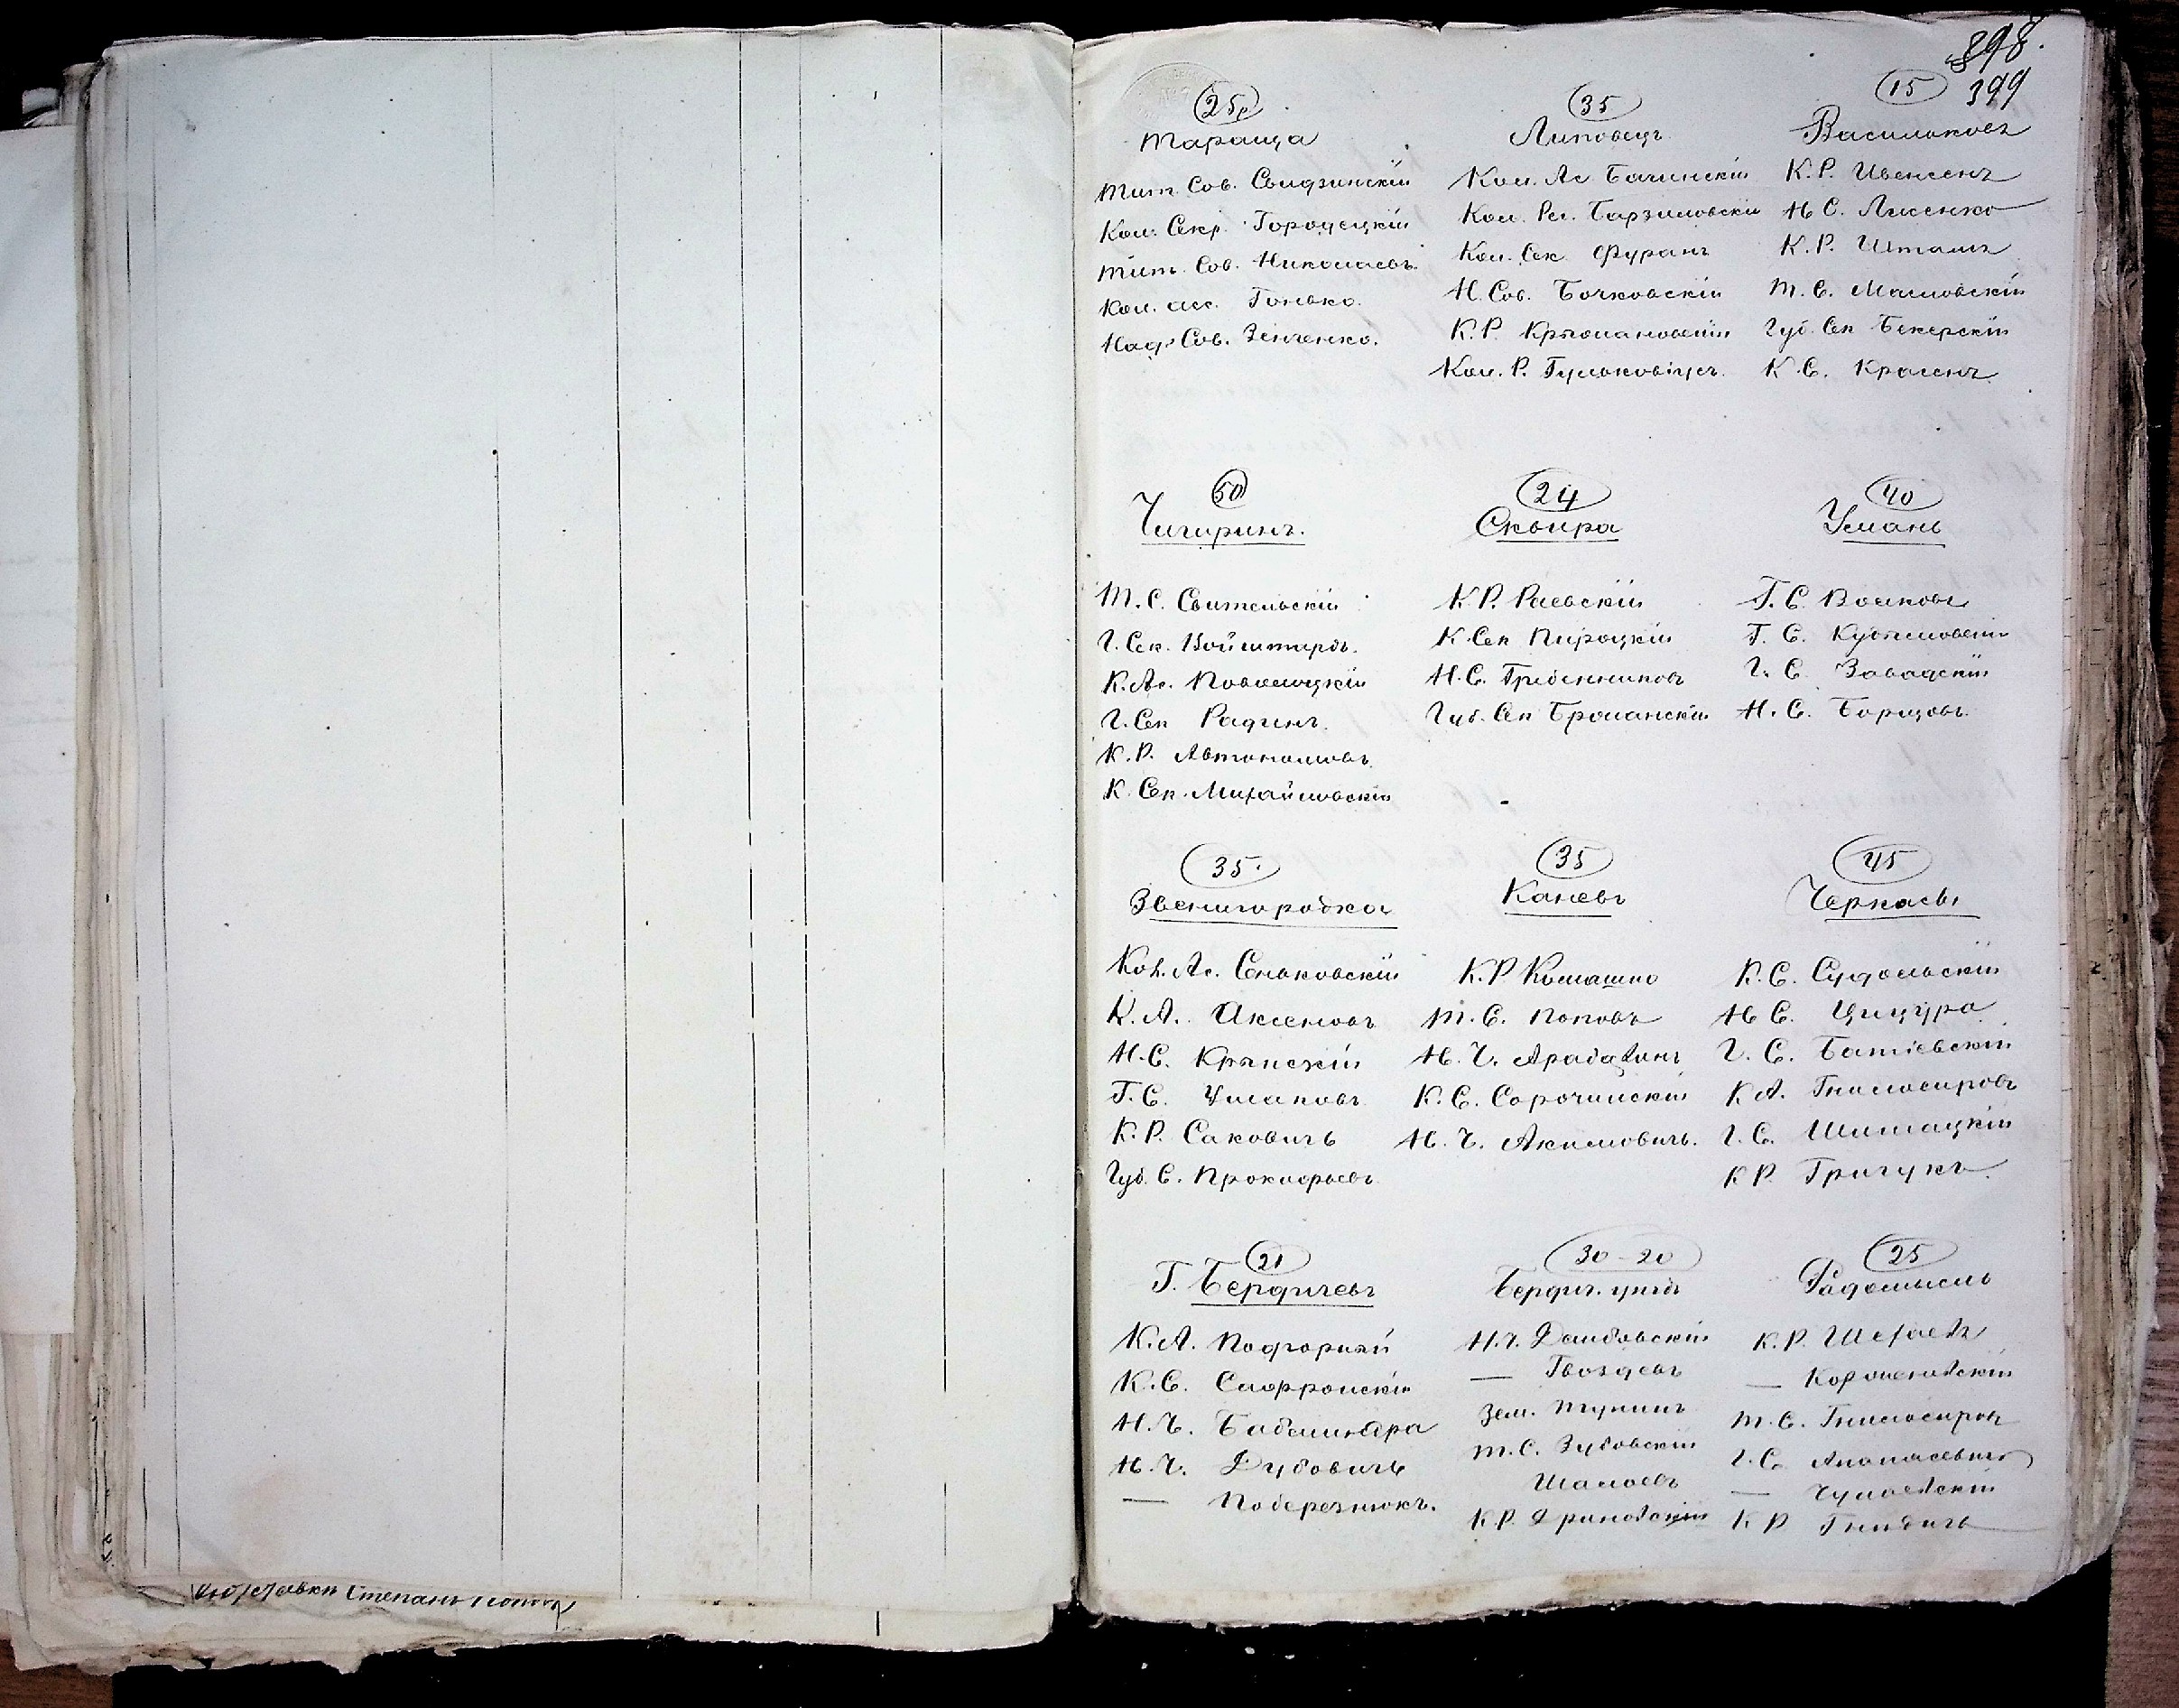 898.
399
25р
Тараща
Тит. Сов. Свидзинскій
Кол. Секр. Городецкій
Тит. Сов. Николаевъ.
Кол. асс. Гонько.
Над. Сов. Зенченко.
35
Липовецъ
Кол. Ас Бачинскій
Кол. Рег. Барзиловскій
Кол. Сек Фуранъ
Н. Сов. Бочковскій
К. Р. Крыжановскій
Кол. Р. Гульковіусъ.
15
Васильковъ
К. Р. Ивенсенъ
Н С. Лисенко
К. Р. Штамъ
Т. С. Маловскій
Губ. Сек Бекерскій
К. С. Красенъ
50
Чигиринъ.
Т. С. Свительскій
Г. Сек. Войштырдъ.
К. Ас. Поволоцкій
Г. Сек Радинъ.
К. Р. Автономовъ
К. Сек. Михайловскій
24
Сквира
К. Р. Раевскій
К Сек Пироцкій
Н. С. Гребенниковъ
Губ. Сек Броманскій
40
Умань
Г. С. Волковъ
Г. С. Кублиновскій
Г. С. Завадскій
Н. С. Борщовъ.
35.
Звенигородка
Кол. Ас. Сеньковскій
К. А. Аксеновъ
Н. С. Крупскій
Г. С. Ушаковъ
К. Р. Саковичъ
Губ. С. Прокофьевъ
35
Каневъ
К. Р Комашко
Т. С. Поповъ
Н. Ч. Арабажинъ
К. С. Сорочинскій
Н. Ч. Акимовичъ.
45
Черкасы
К. С. Судольскій
Н С. Цыцура
Г. С. Батіевскій
К А. Гниосыровъ
Г. С. Шимацкій
К Р Грищукъ.
21
Г. Бердичевъ
К. А. Подгорный
К. С. Сафронскій
Н. Ч. Бабешндра
Н. Ч. Дубовичъ
— Побережнюкъ.
30-20
Бердич. уѣзд
Н. Ч. Дембовскій
— Гвоздевъ
Зем. Тупицъ
Т. С. Зубовскій
Шамаевъ
К. Р. Дриновскій
25
Радомысль
К. Р. Шехаевъ
— Корженевскій
Т. С. Гниосыровъ
Г. С. Апанасевичъ
— Чумаевскій
К Р Гнидичъ
Степанъ